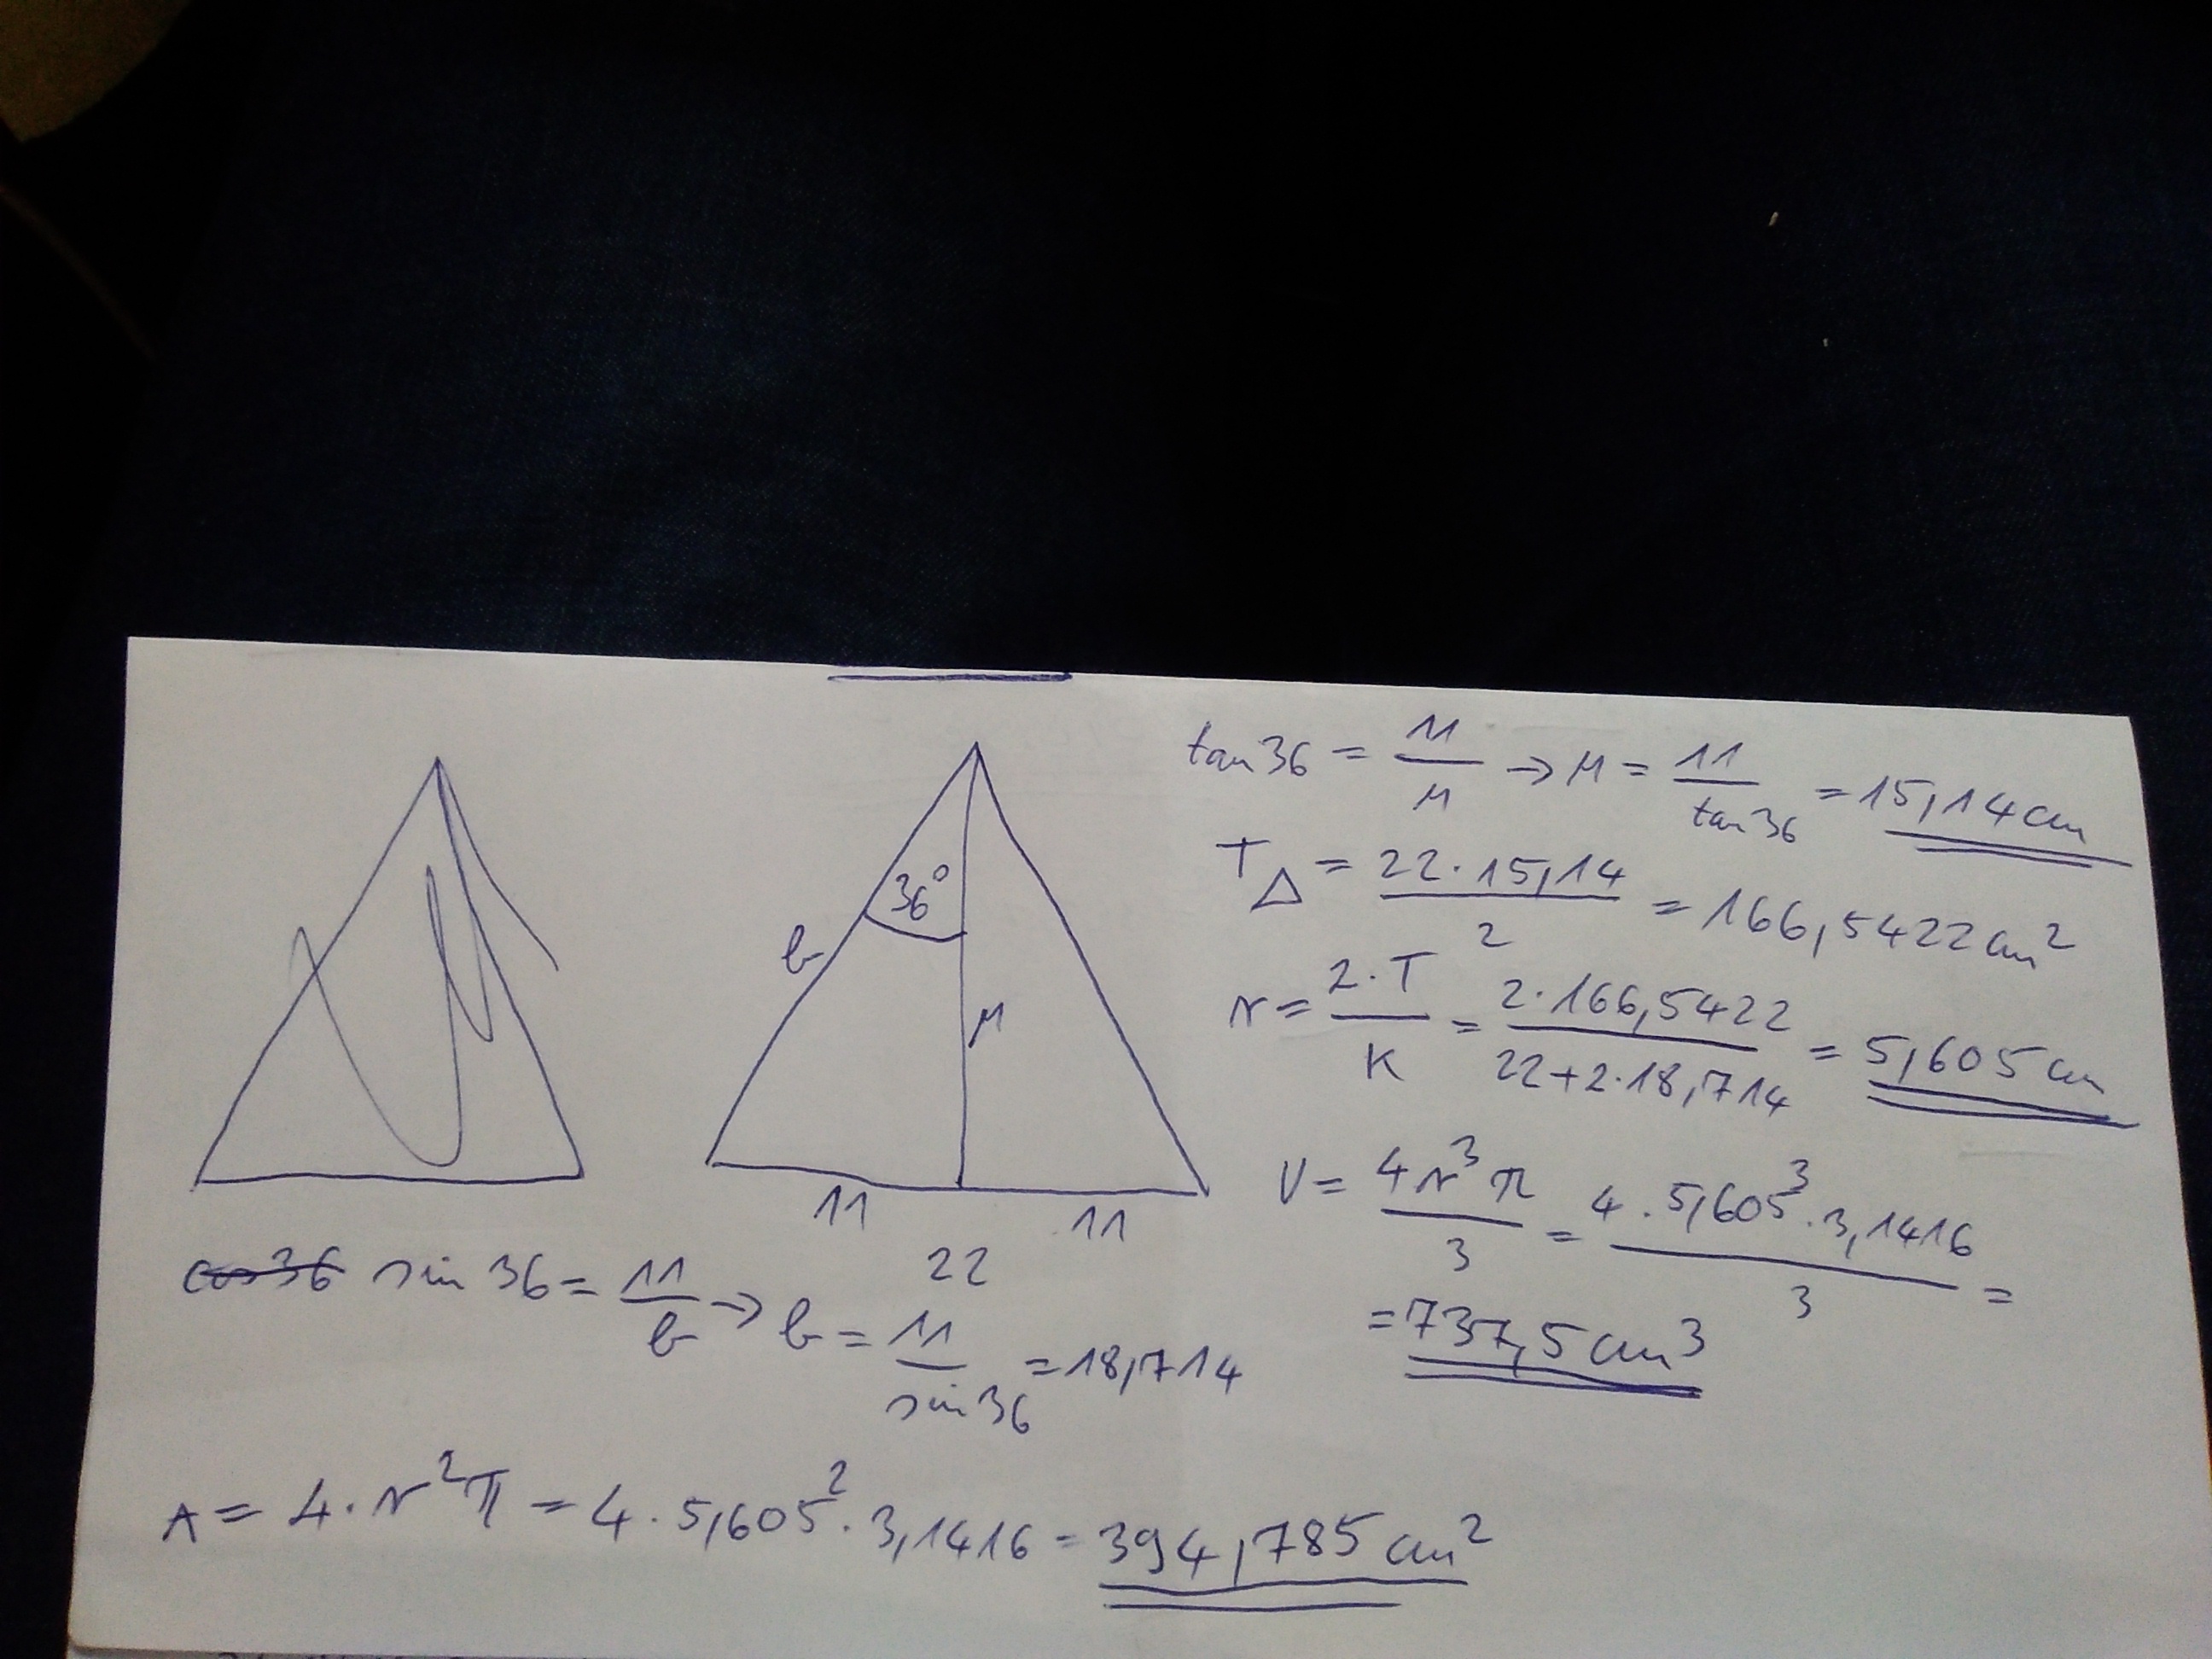 tan 36 = 11/M → M = 11/tan 36 = 15,14 cm
T△ = 22·15,14/2 = 166,5422 cm²
36°
b
M
r = 2·T/K = 2·166,5422/22+2·18,714 = 5,605 cm
11 11
22
V = 4r³π/3 = 4·5,605³·3,1416/3 =
= 737,5 cm³
cos 36 sin 36 = 11/b → b = 11/sin 36 = 18,714
A = 4·r²π = 4·5,605²·3,1416 = 394,785 cm²